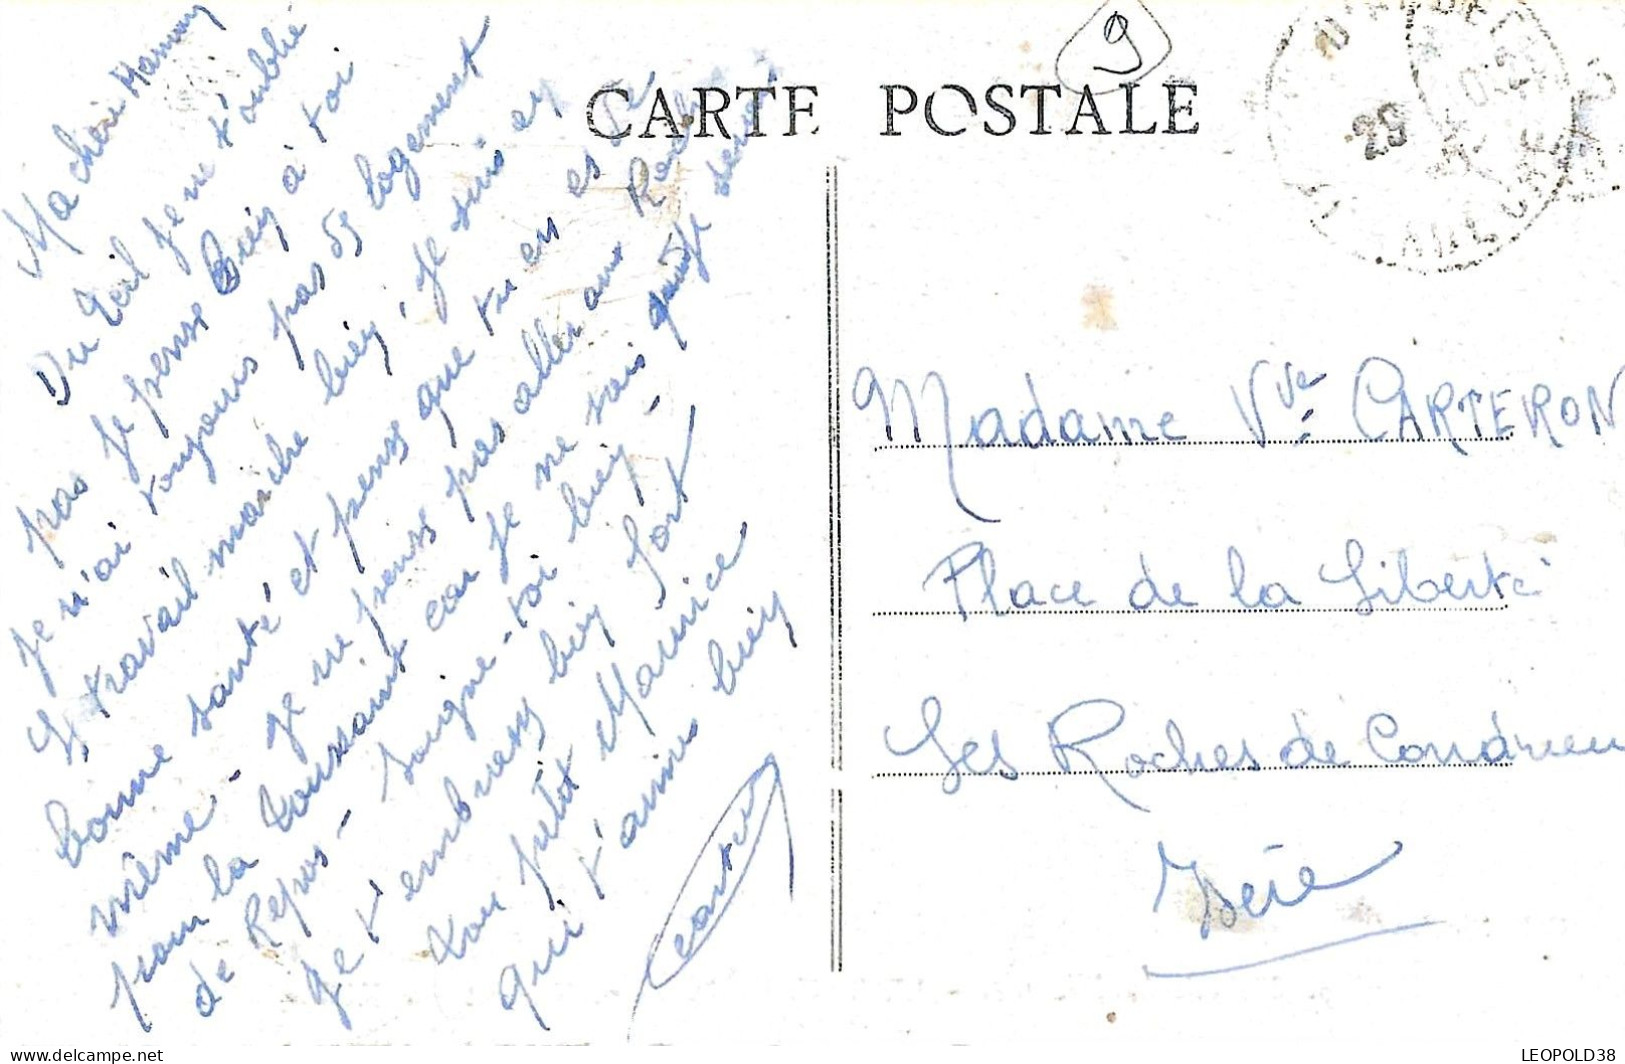 CARTE POSTALE
9
29
Ma chérie Maman
Du Teil je ne t'oublie
pas je pense bien à toi
Je n'ai toujours pas de logement
Le travail marche bien, je suis en
bonne santé et pense que tu en es de
même - je ne pense pas aller aux Roches
pour la Toussaint car je ne sais quand je serai
de Repos - Soigne-toi bien -
Je t'embrasse bien fort
Ton petit Maurice
qui t'aime bien
Madame Vve CARTERON
Place de la Liberté
Les Roches de Condrieu
Isère
LEOPOLD38